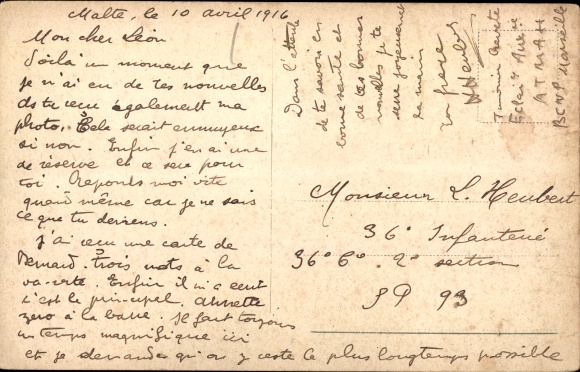 Malte, le 10 avril 1916
Mon cher Léon
Voilà un moment que
je n'ai eu de tes nouvelles
as tu reçu également ma
photo. Cela serait ennuyeux
si non. Enfin j'en ai une
de réserve et ce sera pour
toi. Réponds moi vite
quand même car je ne sais
ce que tu deviens.
J'ai reçu une carte de
Bernard. Trois mots à la
va-vite. Enfin il m'a écrit
c'est le principal.
zéro à la barre. Il fait toujours
un temps magnifique ici
et je demande qu'on y reste le plus longtemps possible
Dans l'attente
de te savoir en
bonne santé et
de tes bonnes
nouvelles je te
serre joyeusement
la main
ton frère
Monsieur L. Heubert
36e Infanterie
36e Cie 2e section
SP 93